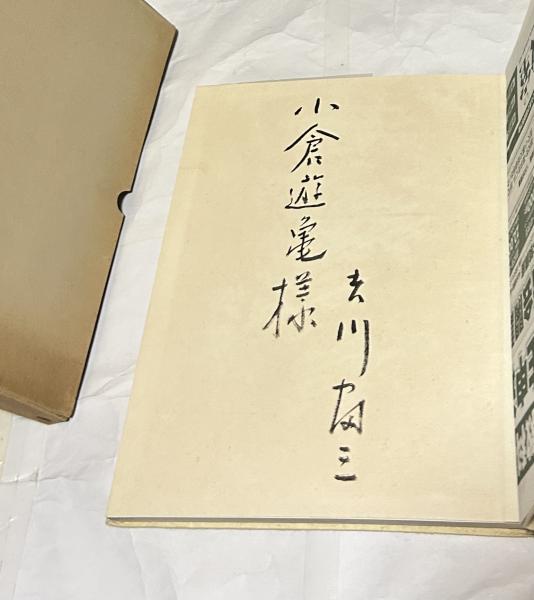 小倉遊亀様
吉川富三